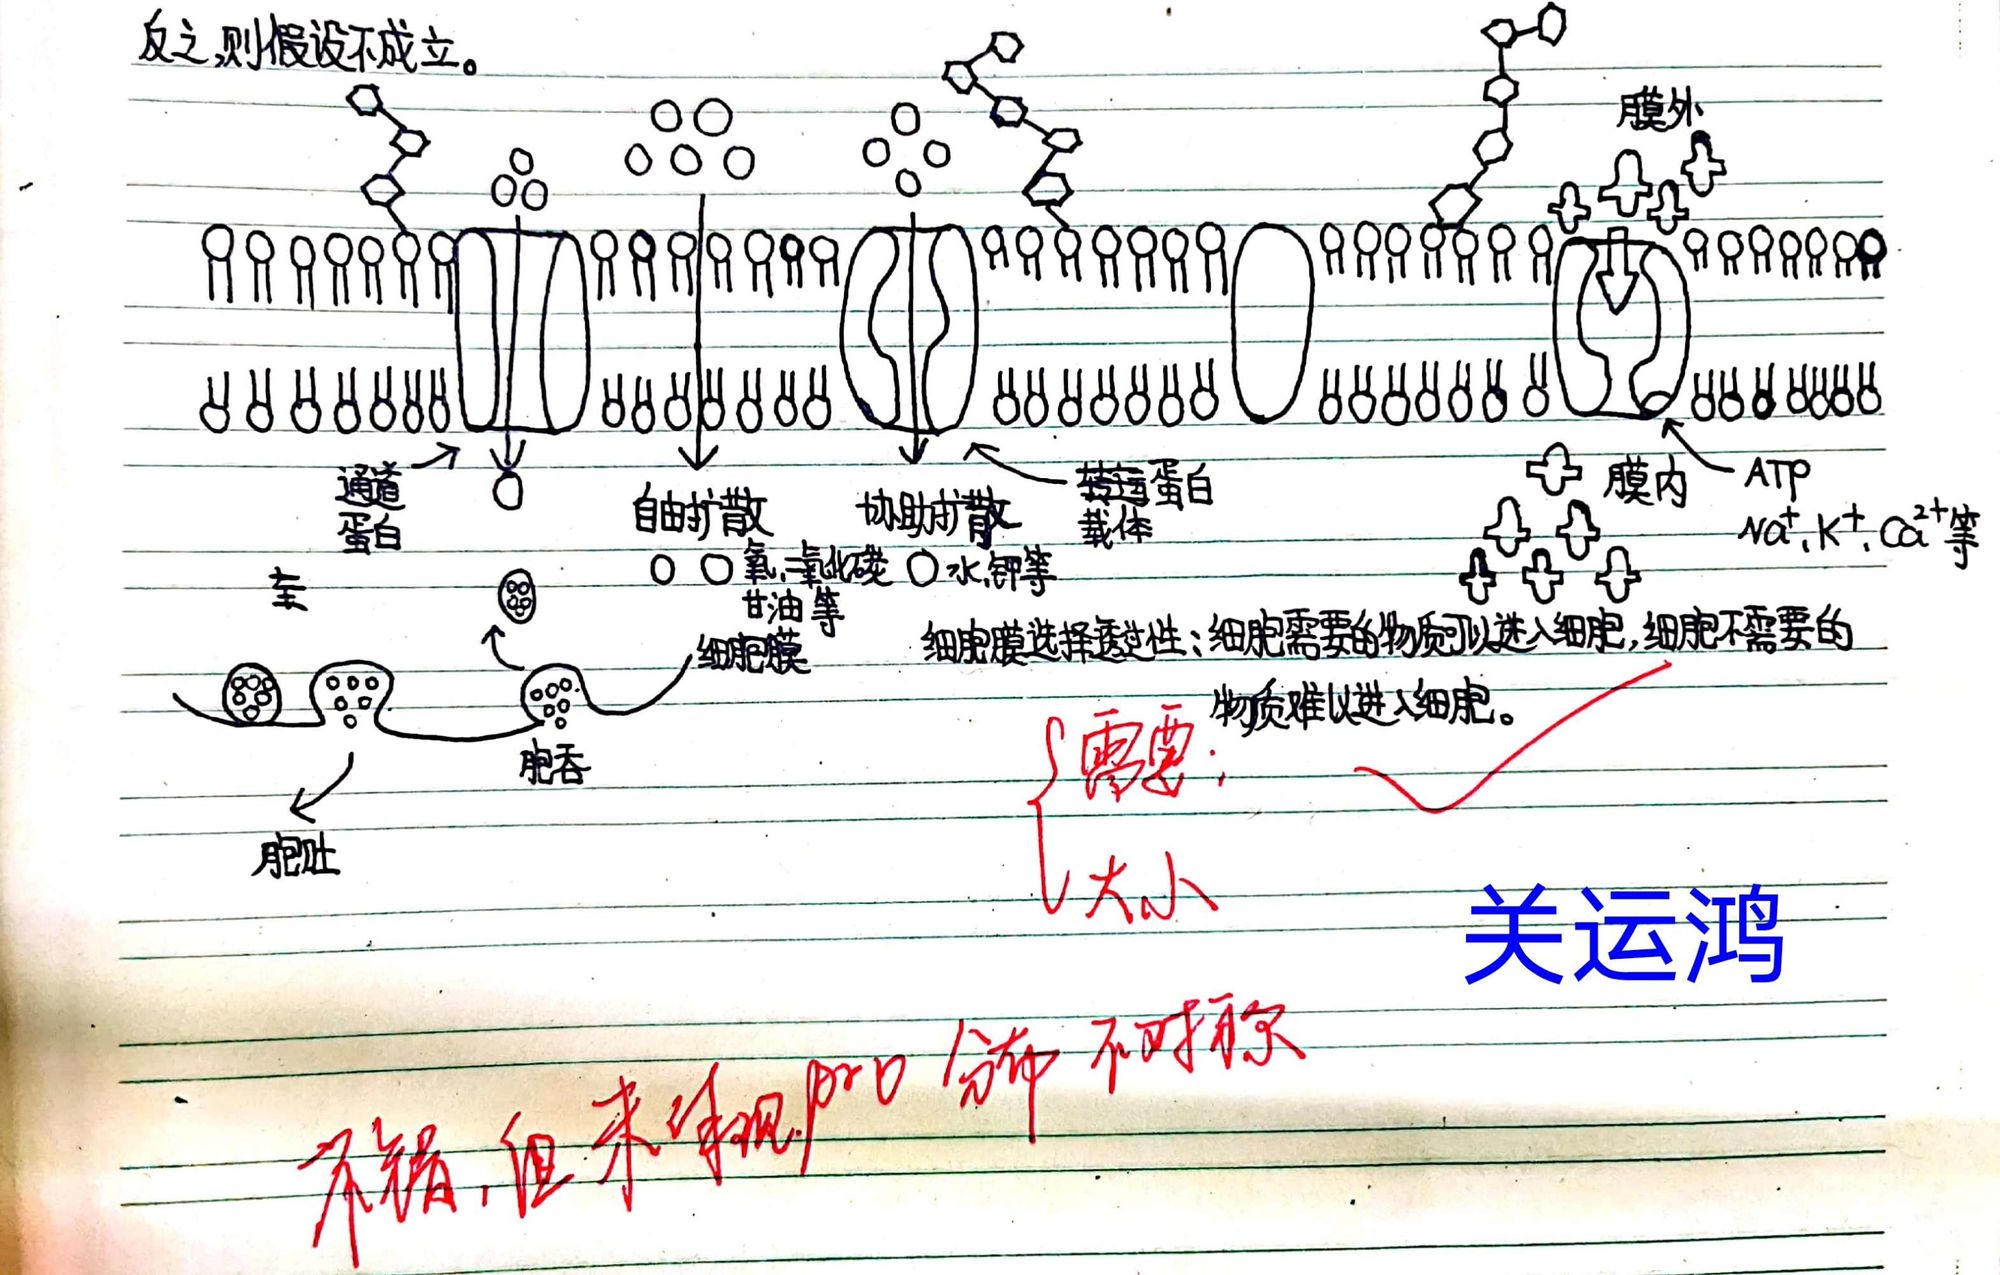 反之,则假设不成立。
膜外
通道
蛋白
自由扩散
协助扩散
蛋白
载体
膜内
ATP
Na⁺、K⁺、Ca²⁺等
氧、二氧化碳
甘油等
水、钾等
细胞膜
细胞膜选择透过性：细胞需要的物质可以进入细胞,细胞不需要的
物质难以进入细胞。
胞吞
胞吐
需要：
大小
关运鸿
不错,但未体现pro分布不对称